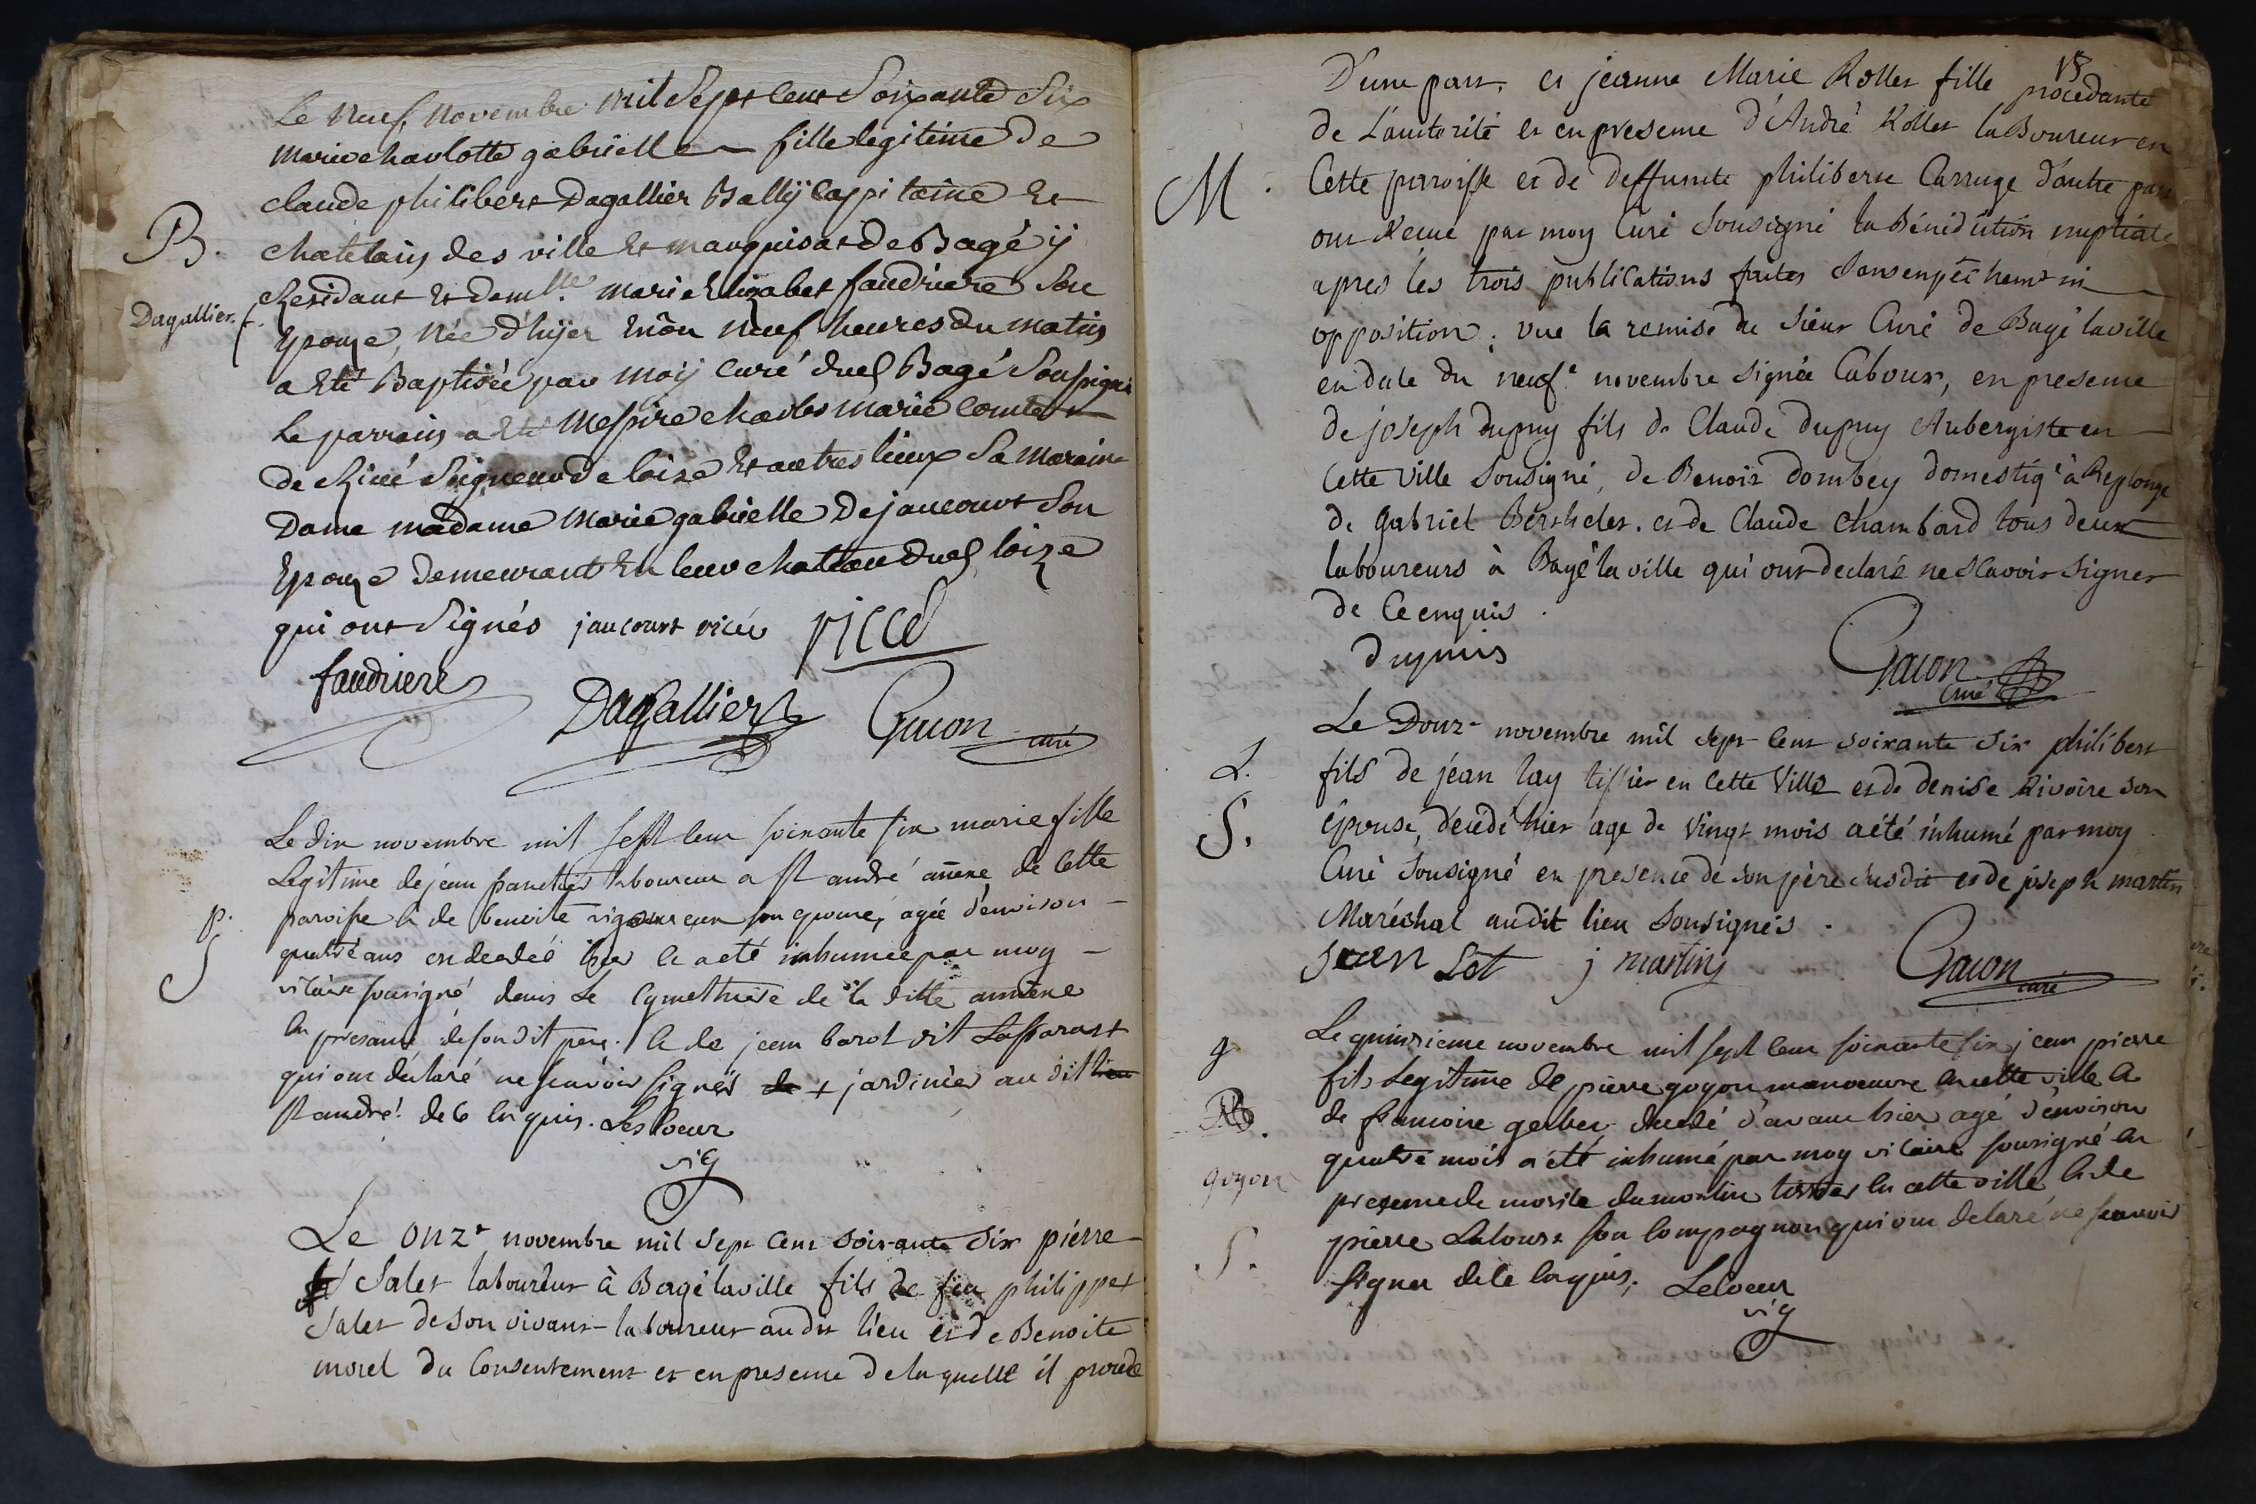 Le neuf novembre mil Sept Cent Soixante Six
Marie charlotte gabrielle fille legitime de
claude philibert Dagallier Bally Cappitaine Et
B.
chatelain des ville Et marquisat de Bagé ÿ
Residant Et demlle marie Elizabet faudriere Son
Dagallier
Epouze, Née d'hyer Environ neuf heures du matin
a Eté Baptisée par moÿ curé dud Bagé Soussigné
Le parrain a Eté Messire charles marie Comte
de Riccé Seigneur de loize Et autres lieux La Maraine
Dame madame Marie gabrielle Dejaucourt Son
Epouze demeurant En leur chateau dud loize
qui ont Signés jaucourt riccé riccé
faudriere
Dagallier Gacon curé
Le dix novembre mil sept Cent soixante six marie fille
Legitime de jean laboureur a st andré annexe de Cette
paroisse & de benoite son epouse, agée d'environ
p.
S
quatre ans en decedeé hier & a eté inhumée par moy
vicaire sousigné dans Le Cymethiere de la ditte annexe
En presance de son dit pere. & de jean barol dit
qui ont declaré ne scavoir signés de + jardinier au dit lieu
st andré! de ce Enquis. Lescoeur
vic
Le onze novembre mil Sept Cent soixante Six piérre
Sales laboureur à Bagé la ville fils de feu philippe
Sales de Son vivant laboureur au dit lieu et de Benoite
morel du Consentement et en presence de laquelle il procede
15
D'une part. et jeanne Marie Rollet fille procedante
de L'autorité et en presence d'André Rollet laBoureur en
M.
Cette parroisse et de deffunte philiberte Carruge d'autre part
ont Receu par moy Curé Sousigné la Bénédiction nuptiale
apres les trois publications faites Sans empêchemt ni
opposition; vue la remise du Sieur Curé de Bagé la ville
en date du neufe novembre Signée Cabour, en presence
de joseph dupuy fils de Claude dupuy Aubergiste en
Cette Ville Sousigné, de Benoit dombey domestiqe à Replonge
de Gabriel Berthelet. et de Claude Chambard tous deux
laboureurs à Bagé la ville qui ont declaré ne Scavoir Signer
de Ce enquis.
dupuis
Gacon curé
Le Douze novembre mil Sept Cent soixante Six philibert
L.
fils de jéan Lay tissier en Cette Ville et de denise Rivoire son
S.
épouse, décédé hier age de vingt mois a été inhumé par moy
Curé Sousigné en présence de son père susdit et de joseph martin
Maréchal audit lieu Sousignés.
jean Let j martin
Gacon curé
Le quinzieme novembre mil sept Cent soixante six jean pierre
g
fils Legitime de pierre goyon manoeuvre En cette ville &
de francoise gerber decedé d'avant hier agé d'environ
goyon
quatre mois a eté inhumé par moy vicaire sousigné En
presence de dumoulin tissier En cette ville & de
pierre Latour son Compagnon qui ont delaré ne scavoir
S.
signer de Ce Enquis. Lecoeur
vic